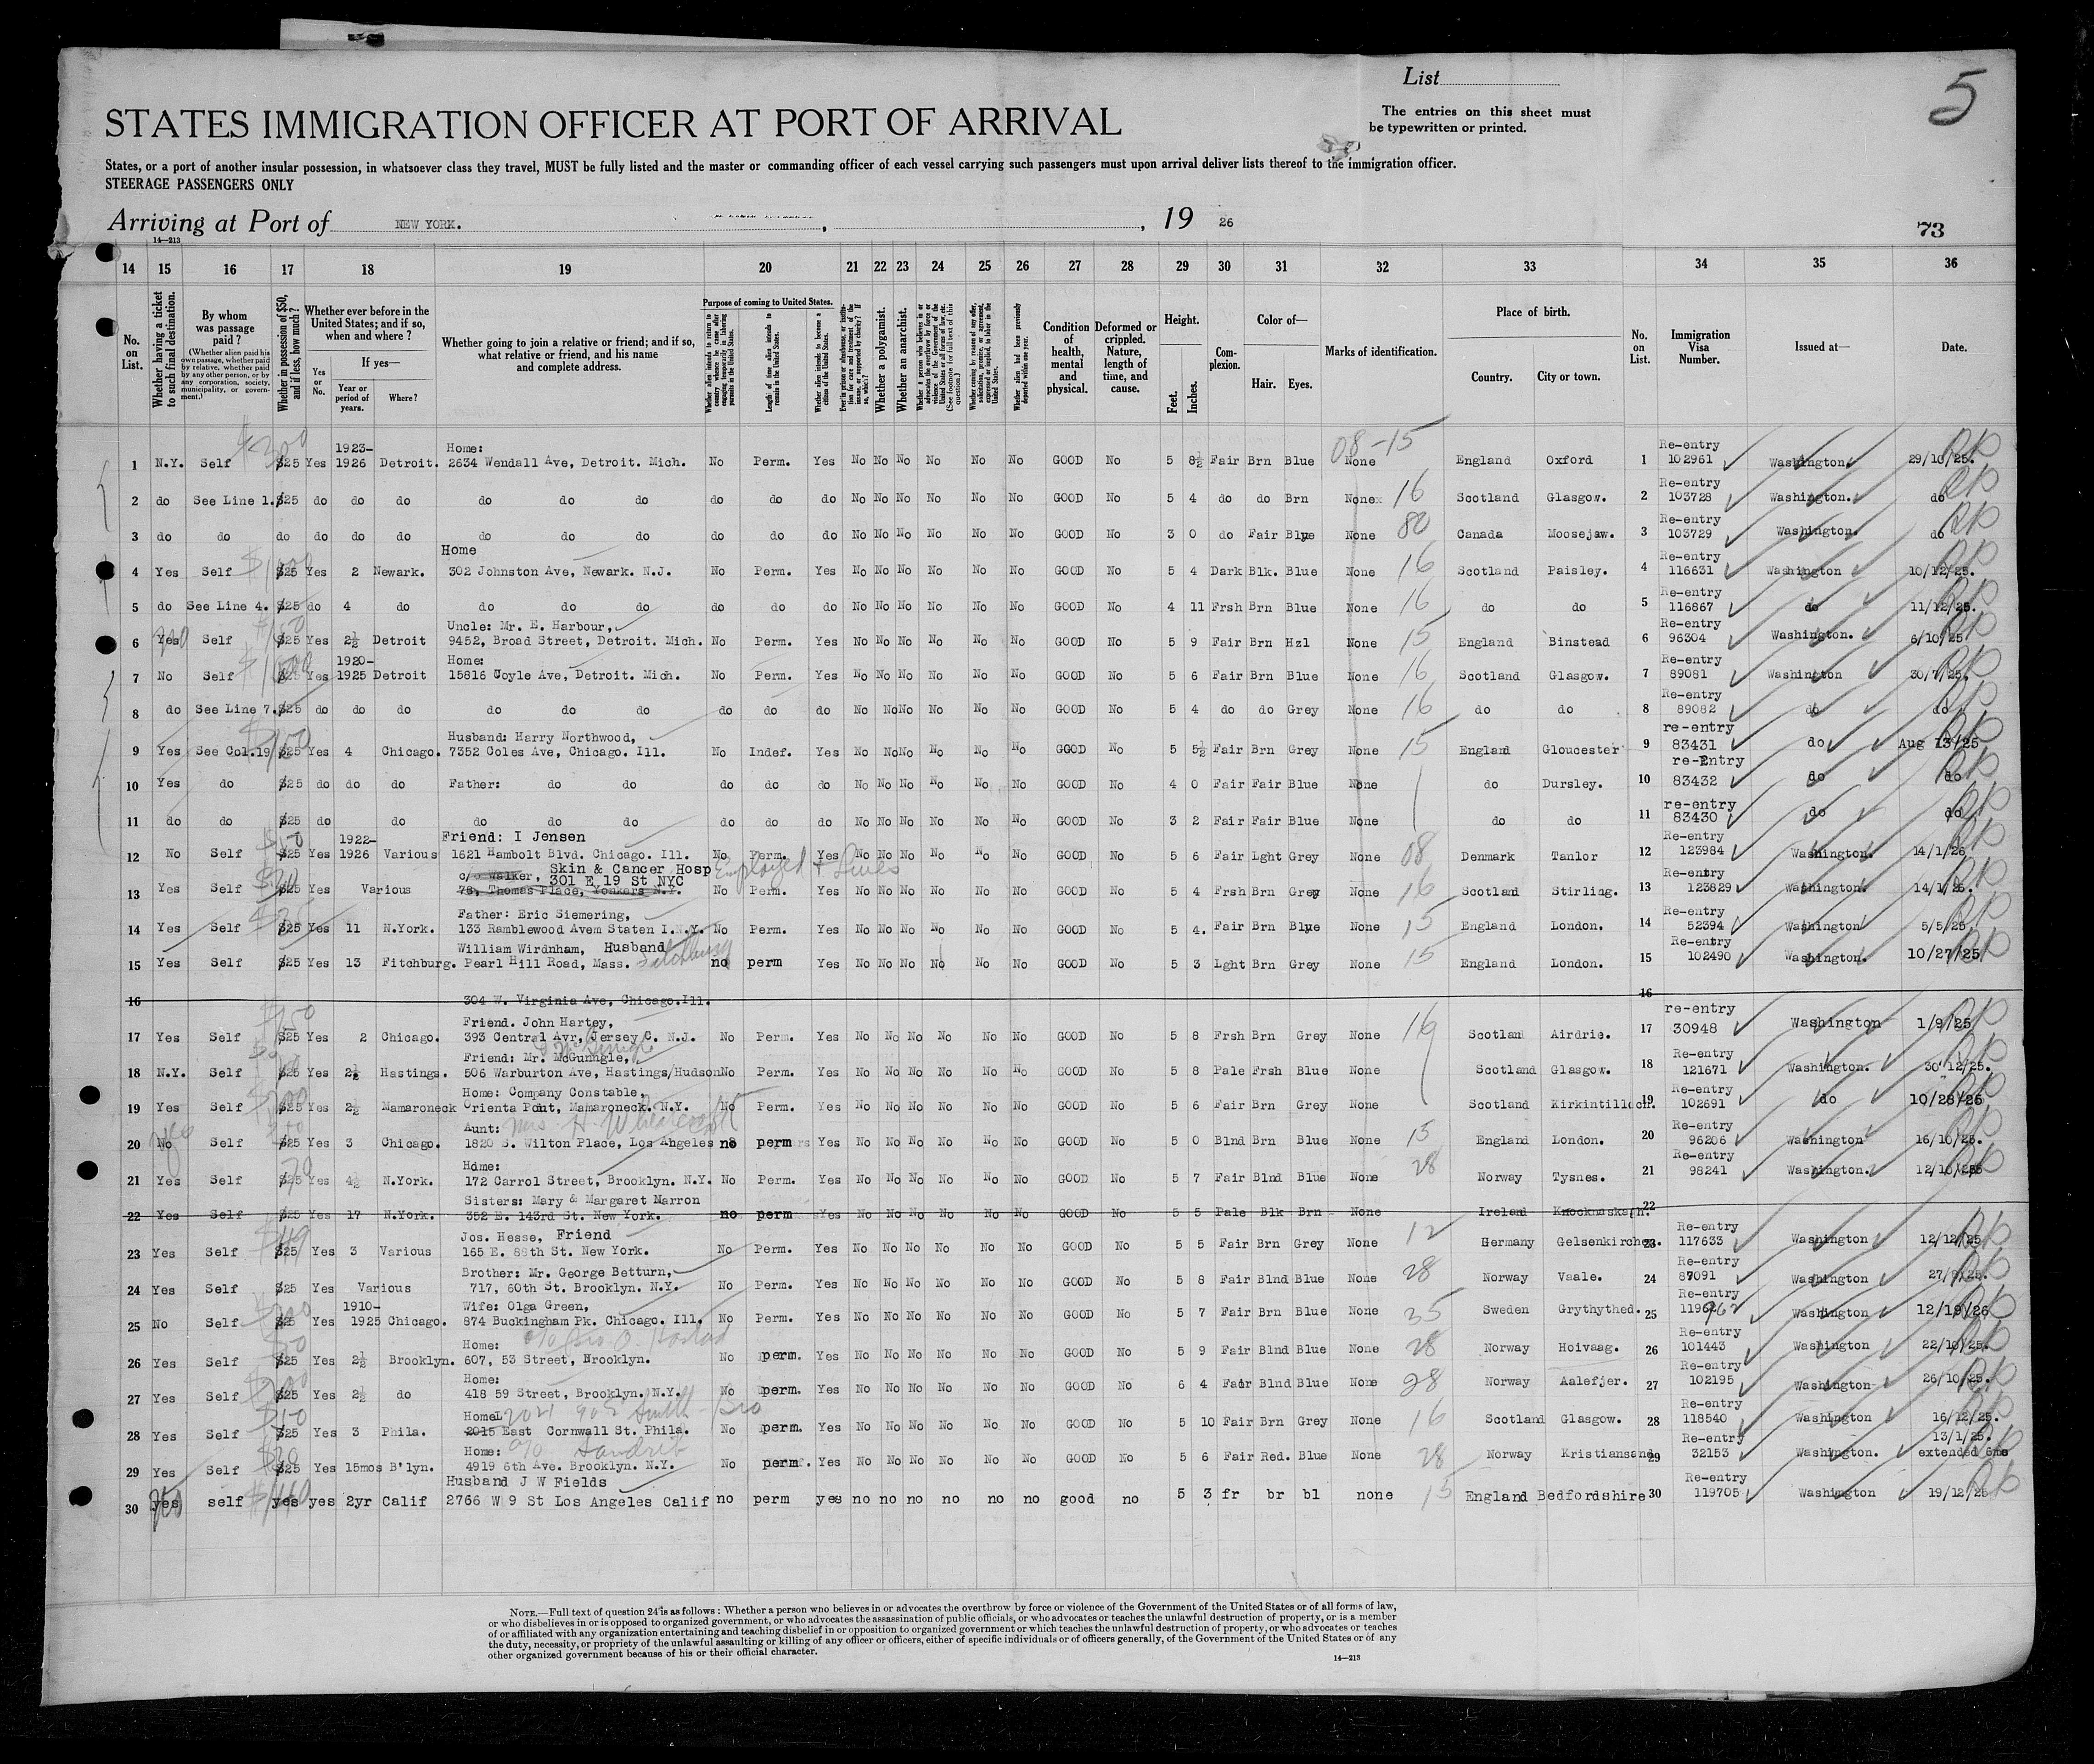 List
5
STATES IMMIGRATION OFFICER AT PORT OF ARRIVAL
The entries on this sheet must
be typewritten or printed.
States, or a port of another insular possession, in whatsoever class they travel, MUST be fully listed and the master or commanding officer of each vessel carrying such passengers must upon arrival deliver lists thereof to the immigration officer.
STEERAGE PASSENGERS ONLY
Arriving at Port of NEW YORK. , , 19 26
73
14—213
14 15 16 17 18 19 20 21 22 23 24 25 26 27 28 29 30 31 32 33 34 35 36
No. on List.
Whether having a ticket to such final destination.
By whom was passage paid?
(Whether alien paid his own passage, whether paid by relative, whether paid by any other person, or by any corporation, society, municipality, or government.)
Whether in possession of $50, and if less, how much?
Whether ever before in the United States; and if so, when and where?
Yes or No.
If yes—
Year or period of years.
Where?
Whether going to join a relative or friend; and if so, what relative or friend, and his name and complete address.
Purpose of coming to United States.
Length of time alien intends to remain in the United States.
Whether alien intends to become a citizen of the United States.
Whether a polygamist.
Whether an anarchist.
Condition of health, mental and physical.
Deformed or crippled. Nature, length of time, and cause.
Height.
Feet. Inches.
Complexion.
Color of—
Hair. Eyes.
Marks of identification.
Place of birth.
Country. City or town.
No. on List.
Immigration Visa Number.
Issued at—
Date.
1923- Home: 08-15 Re-entry
1 N.Y. Self $25 Yes 1926 Detroit. 2634 Wendall Ave, Detroit. Mich. No Perm. Yes No No No No No No GOOD No 5 8½ Fair Brn Blue None England Oxford 1 102961 Washington. 29/10/25.
Re-entry
2 do See Line 1. $25 do do do do do do do do do No No No No No No GOOD No 5 4 do do Brn None 16 Scotland Glasgow. 2 103728 Washington. do
Re-entry
3 do do do do do do do do do do do do No No No No No No GOOD No 3 0 do Fair Blue None 80 Canada Moosejaw. 3 103729 Washington. do
Home Re-entry
4 Yes Self $25 Yes 2 Newark. 302 Johnston Ave, Newark. N.J. No Perm. Yes No No No No No No GOOD No 5 4 Dark Blk. Blue None 16 Scotland Paisley. 4 116631 Washington 10/12/25.
Re-entry
5 do See Line 4. $25 do 4 do do do do do do do No No No No No No GOOD No 4 11 Frsh Brn Blue None 16 do do 5 116867 do 11/12/25.
Uncle: Mr. E. Harbour, Re-entry
6 Yes Self $25 Yes 2½ Detroit 9452, Broad Street, Detroit. Mich. No Perm. Yes No No No No No No GOOD No 5 9 Fair Brn Hzl None 15 England Binstead 6 96304 Washington. 6/10/25
1920- Home: Re-entry
7 No Self $25 Yes 1925 Detroit 15816 Coyle Ave, Detroit. Mich. No Perm. Yes No No No No No No GOOD No 5 6 Fair Brn Blue None 16 Scotland Glasgow. 7 89081 Washington 30/7/25.
Re-entry
8 do See Line 7. $25 do do do do do do do do do No No No No No No GOOD No 5 4 do do Grey None 16 do do 8 89082 do do
Husband: Harry Northwood, re-entry
9 Yes See Col.19 $25 Yes 4 Chicago. 7352 Coles Ave, Chicago. Ill. No Indef. Yes No No No No No No GOOD No 5 5½ Fair Brn Grey None 15 England Gloucester 9 83431 do Aug 13/25
re-entry
10 Yes do $25 do do do Father: do do do do do No No No No No No GOOD No 4 0 Fair Fair Blue None do Dursley. 10 83432 do do
re-entry
11 do do $25 do do do do do do do do No No No No No No GOOD No 3 2 Fair Fair Blue None do do 11 83430 do do
1922- Friend: I Jensen Re-entry
12 No Self $25 Yes 1926 Various 1621 Hambolt Blvd. Chicago. Ill. No Perm. Yes No No No No No No GOOD No 5 6 Fair Lght Grey None 08 Denmark Tanlor 12 123984 Washington. 14/1/26
c/o Walker, Skin & Cancer Hosp Employed + Lives Re-entry
301 E 19 St NYC
13 Yes Self $25 Yes Various 78, Thomas Place, Yonkers N.Y. No Perm. Yes No No No No No No GOOD No 5 4 Frsh Brn Grey None 16 Scotland Stirling. 13 123829 Washington. 14/1/26.
Father: Eric Siemering, Re-entry
14 Yes Self $25 Yes 11 N.York. 133 Ramblewood Avem Staten I. N.Y. No Perm. Yes No No No No No No GOOD No 5 4. Fair Brn Blue None 15 England London. 14 52394 Washington 5/5/25.
William Wirdnham, Husband Re-entry
15 Yes Self $25 Yes 13 Fitchburg. Pearl Hill Road, Mass. Fitchburg no perm Yes No No No No No No GOOD No 5 3 Lght Brn Grey None 15 England London. 15 102490 Washington. 10/27/25
16 304 W. Virginia Ave, Chicago.Ill. 16
Friend. John Hartey, re-entry
17 Yes Self $25 Yes 2 Chicago. 393 Central Avr, Jersey C. N.J. No Perm. Yes No No No No No No GOOD No 5 8 Frsh Brn Grey None 16 Scotland Airdrie. 17 30948 Washington 1/9/25
Friend: Mr. McGunngle, Re-entry
18 N.Y. Self $25 Yes 2½ Hastings. 506 Warburton Ave, Hastings/Hudson No Perm. Yes No No No No No No GOOD No 5 8 Pale Frsh Blue None Scotland Glasgow. 18 121671 Washington. 30 12/25.
Home: Company Constable, Re-entry
19 Yes Self $25 Yes 2½ Mamaroneck Orienta Point, Mamaroneck. N.Y. No Perm. Yes No No No No No No GOOD No 5 6 Fair Brn Grey None Scotland Kirkintilloch. 19 102691 do 10/28/25
Aunt: Mrs. H. Re-entry
20 No Self $25 Yes 3 Chicago. 1820 S. Wilton Place, Los Angeles no perm Yes No No No No No No GOOD No 5 0 Blnd Brn Blue None 15 England London. 20 96206 Washington 16/10/25.
Home: Re-entry
21 Yes Self $25 Yes 4½ N.York. 172 Carrol Street, Brooklyn. N.Y. No Perm. Yes No No No No No No GOOD No 5 7 Fair Blnd Blue None 28 Norway Tysnes. 21 98241 Washington. 12/10/25
Sisters: Mary & Margaret Marron
22 Yes Self $25 Yes 17 N.York. 352 E. 143rd St. New York. no perm Yes No No No No No No GOOD No 5 5 Pale Blk Brn None Ireland 22
Jos. Hesse, Friend Re-entry
23 Yes Self $25 Yes 3 Various 165 E. 88th St. New York. No Perm. Yes No No No No No No GOOD No 5 5 Fair Brn Grey None 12 Germany Gelsenkirchen. 23 117633 Washington 12/12/25
Brother: Mr. George Betturn, Re-entry
24 Yes Self $25 Yes Various 717, 60th St. Brooklyn. N.Y. No Perm. Yes No No No No No No GOOD No 5 8 Fair Blnd Blue None 28 Norway Vaale. 24 87091 Washington 27/8/25.
1910- Wife: Olga Green, Re-entry
25 No Self $25 Yes 1925 Chicago. 874 Buckingham Pk. Chicago. Ill. No Perm. Yes No No No No No No GOOD No 5 7 Fair Brn Blue None 35 Sweden Grythythed. 25 Washington 12/19/26
Home: Re-entry
26 Yes Self $25 Yes 2½ Brooklyn. 607, 53 Street, Brooklyn. No perm. Yes No No No No No No GOOD No 5 9 Fair Blnd Blue None 28 Norway Hoivaag. 26 101443 Washington 22/10/25.
Home: Re-entry
27 Yes Self $25 Yes 2½ do 418 59 Street, Brooklyn. N.Y. No perm. Yes No No No No No No GOOD No 6 4 Fair Blnd Blue None 28 Norway Aalefjer. 27 102195 Washington 26/10/25.
Home Smith - Bro Re-entry
28 Yes Self $25 Yes 3 Phila. 2015 East Cornwall St. Phila. No perm. Yes No No No No No No GOOD No 5 10 Fair Brn Grey None 16 Scotland Glasgow. 28 118540 Washington 16/12/25.
Home: Re-entry 13/1/25.
29 Yes Self $25 Yes 15mos B'lyn. 4919 6th Ave. Brooklyn. N.Y. No perm. Yes No No No No No No GOOD No 5 6 Fair Red. Blue None 28 Norway Kristiansand 29 32153 Washington. extended 6ms
Husband J W Fields Re-entry
30 yes self yes yes 2yr Calif 2766 W 9 St Los Angeles Calif no perm yes no no no no no no good no 5 3 fr br bl none 15 England Bedfordshire 30 119705 Washington 19/12/25
NOTE.—Full text of question 24 is as follows: Whether a person who believes in or advocates the overthrow by force or violence of the Government of the United States or of all forms of law,
or who disbelieves in or is opposed to organized government, or who advocates the assassination of public officials, or who advocates or teaches the unlawful destruction of property, or is a member
of or affiliated with any organization entertaining and teaching disbelief in or opposition to organized government or which teaches the unlawful destruction of property, or who advocates or teaches
the duty, necessity, or propriety of the unlawful assaulting or killing of any officer or officers, either of specific individuals or of officers generally, of the Government of the United States or of any
other organized government because of his or their official character.
14—213